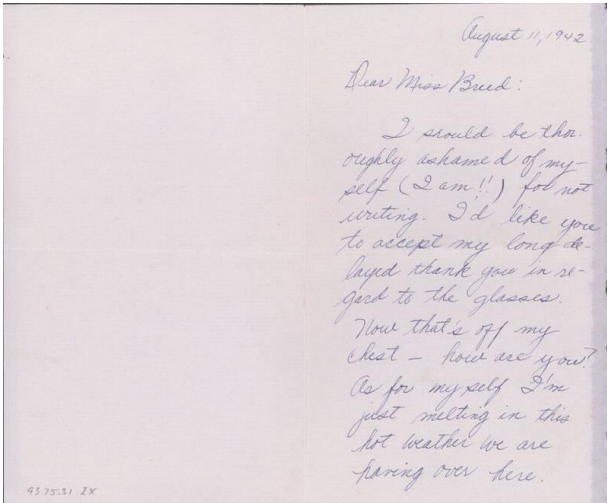 August 11, 1942
Dear Miss Breed:
I should be thor-
oughly ashamed of my-
self (I am!!) for not
writing. I'd like you
to accept my long de-
layed thank you in re-
gard to the glasses.
Now that's off my
chest – how are you?
As for myself I'm
just melting in this
hot weather we are
having over here.
93.75.31 IX